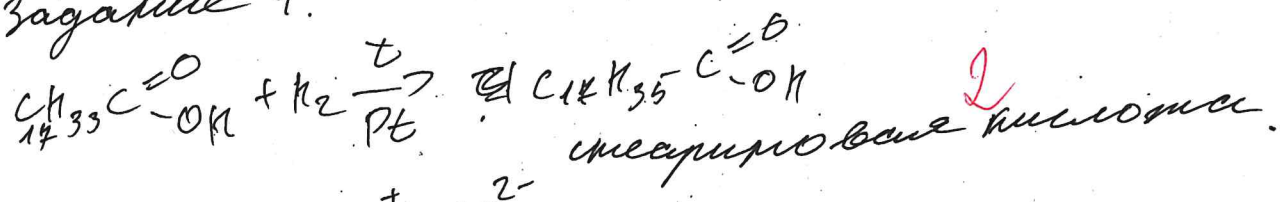 Задание 1.
C₁₇H₃₃C=O-OH + H₂ t→Pt C₁₇H₃₅C=O-OH 2
стеариновая кислота.
+ 2-